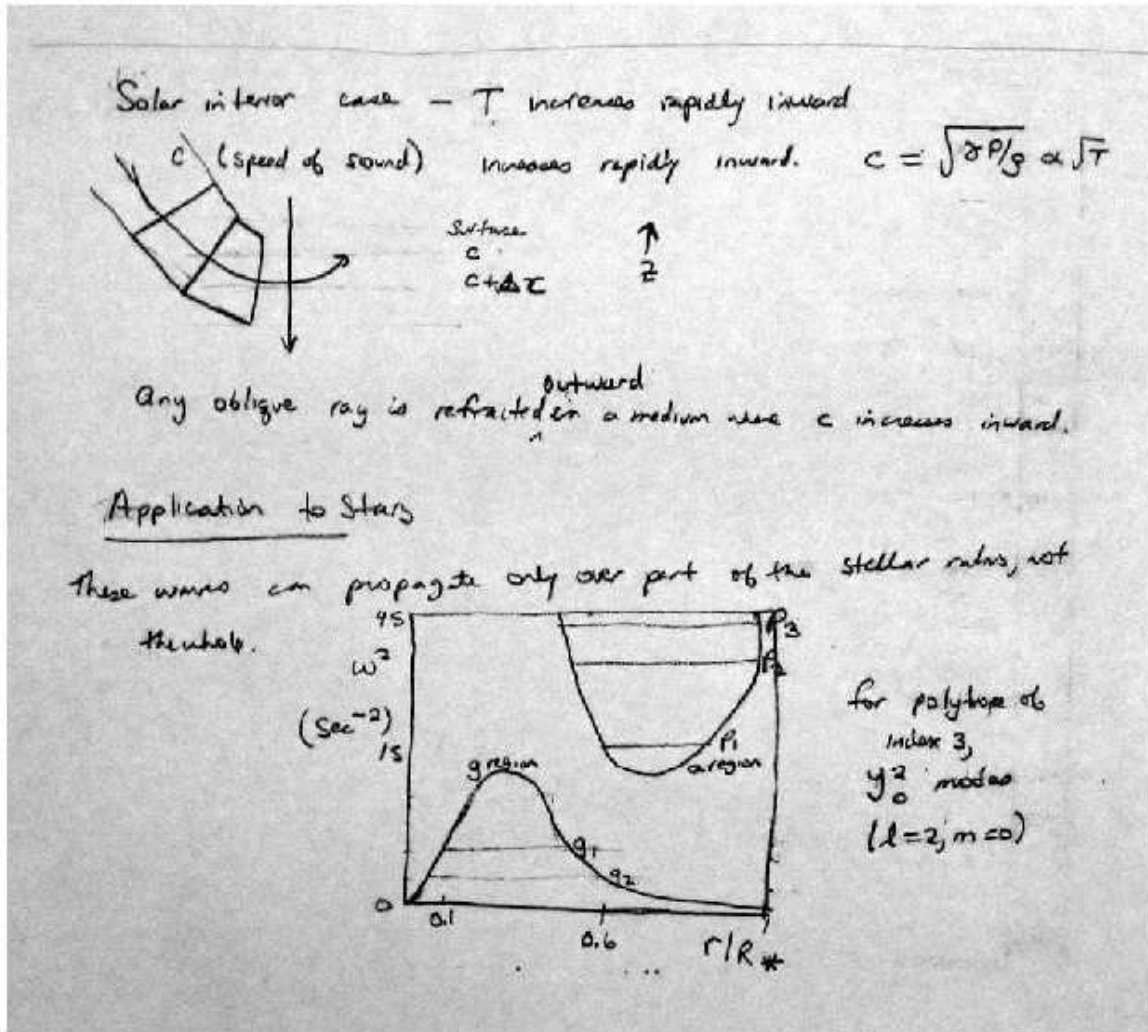 Solar interior case – T increases rapidly inward
C (speed of sound) increases rapidly inward. c = √(γP/ρ) ∝ √T
Surface
c
c+Δc
↑
z
outward
Any oblique ray is refracted ^ in a medium where c increases inward.
Application to Stars
These waves can propagate only over part of the stellar radius, not
the whole.
45
ω²
(sec⁻²)
15
0
P3
P2
P1
a region
g region
g1
g2
0.1
0.6
r/R*
for polytrope of
index 3,
y²₀ modes
(l=2, m=0)